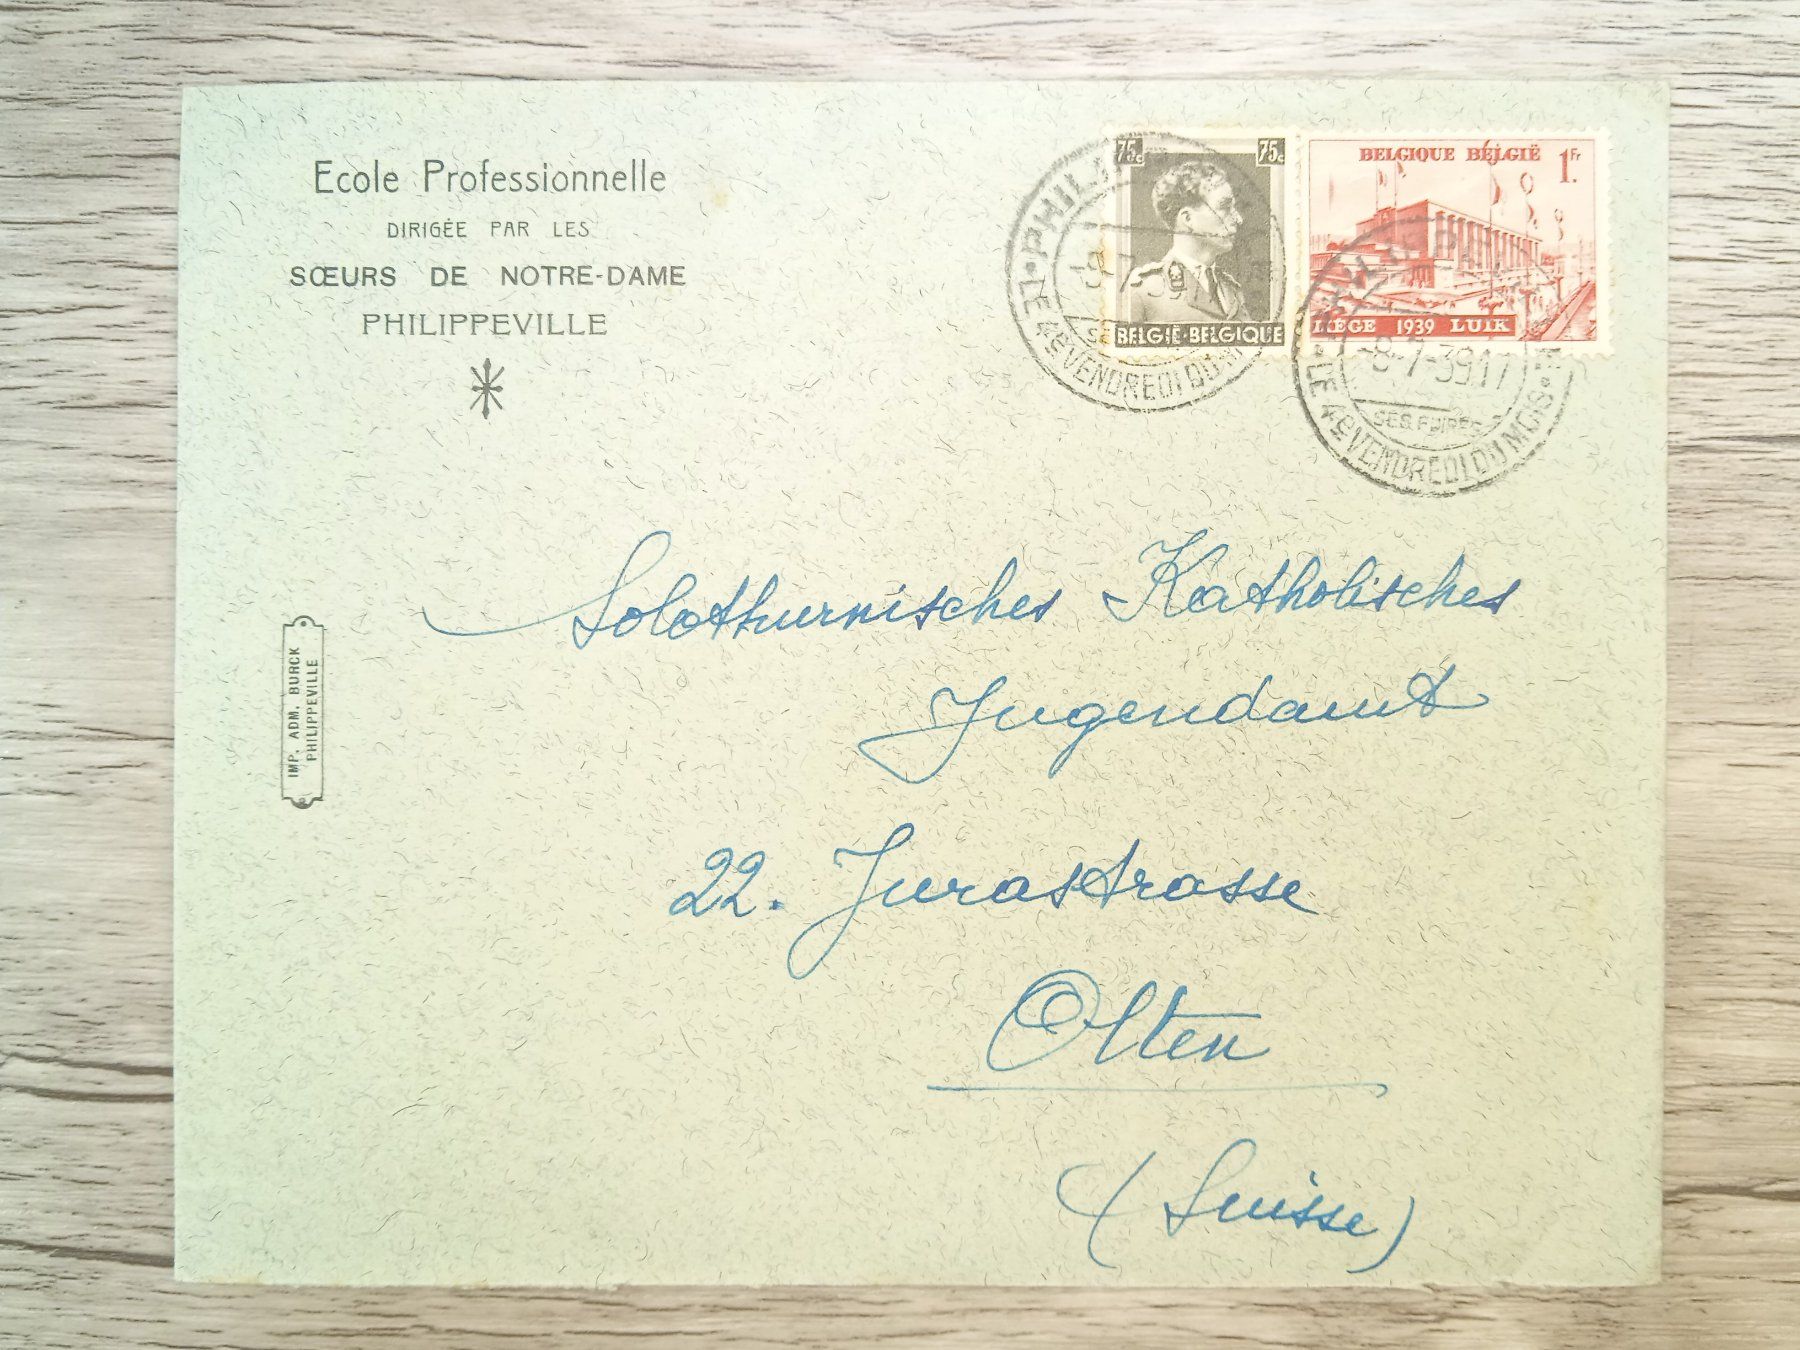 Ecole Professionnelle
DIRIGÉE PAR LES
SŒURS DE NOTRE-DAME
PHILIPPEVILLE
75c 75c
BELGIË-BELGIQUE
BELGIQUE BELGIË 1Fr
LIÈGE 1939 LUIK
LE 4e VENDREDI DU
-8-7-39 17
SES FOIRES
LE 4e VENDREDI DU MOIS
IMP. ADM. BURCK
PHILIPPEVILLE
Solothurnisches Katholisches
Jugendamt
22. Jurastrasse
Olten
(Suisse)